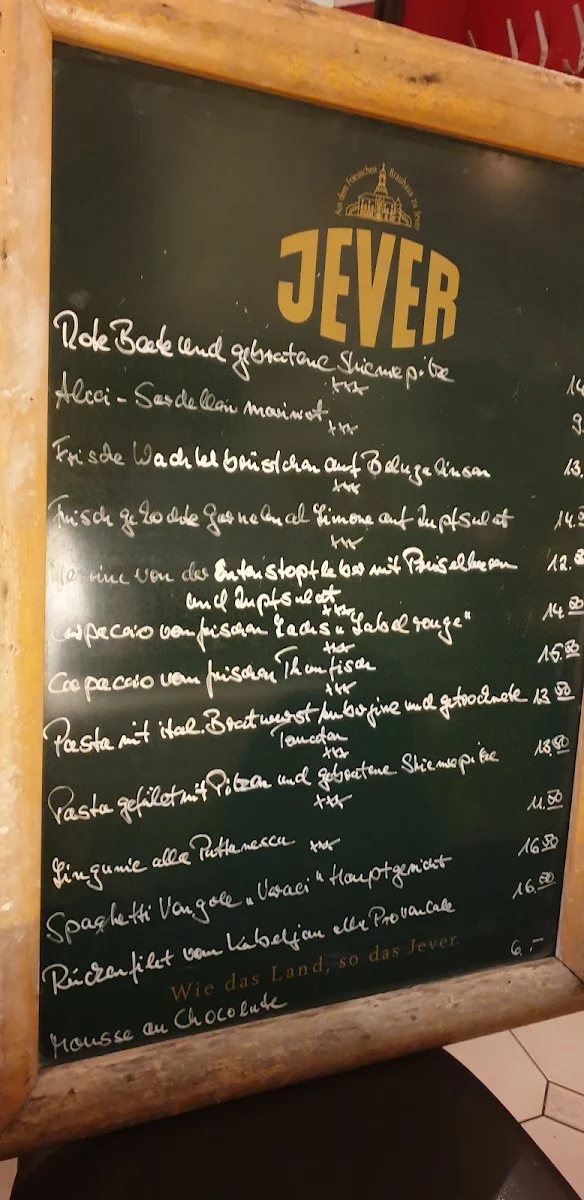 Aus dem Friesischen Brauhaus zu Jever
JEVER
Rote Beete und gebratene Steinepilze
***
Alici - Sardellen mariniert
***
9.
Frische Wachtelbrüstchen auf Belugalinsen
13.
***
Frisch gekochte Garnelen al Limone auf Zupfsalat
14.
***
Terrine von der Entenstopfleber mit Preiselbeeren
12.
und Zupfsalat
***
Carpaccio vom frischen Lachs "Label rouge"
14.00
***
Carpaccio vom frischen Thunfisch
15.
***
Pasta mit ital. Bratwurst Aubergine und getrocknete
13
Tomaten
***
Pasta gefüllt mit Pilzen und gebratene Steinepilze
13.50
***
Linguine alla Puttanesca
11.50
***
Spaghetti Vongole "Veraci" Hauptgericht
16.50
Rückenfilet vom Kabeljau alla Provencale
16.
Wie das Land, so das Jever.
Mousse au Chocolate
6.-